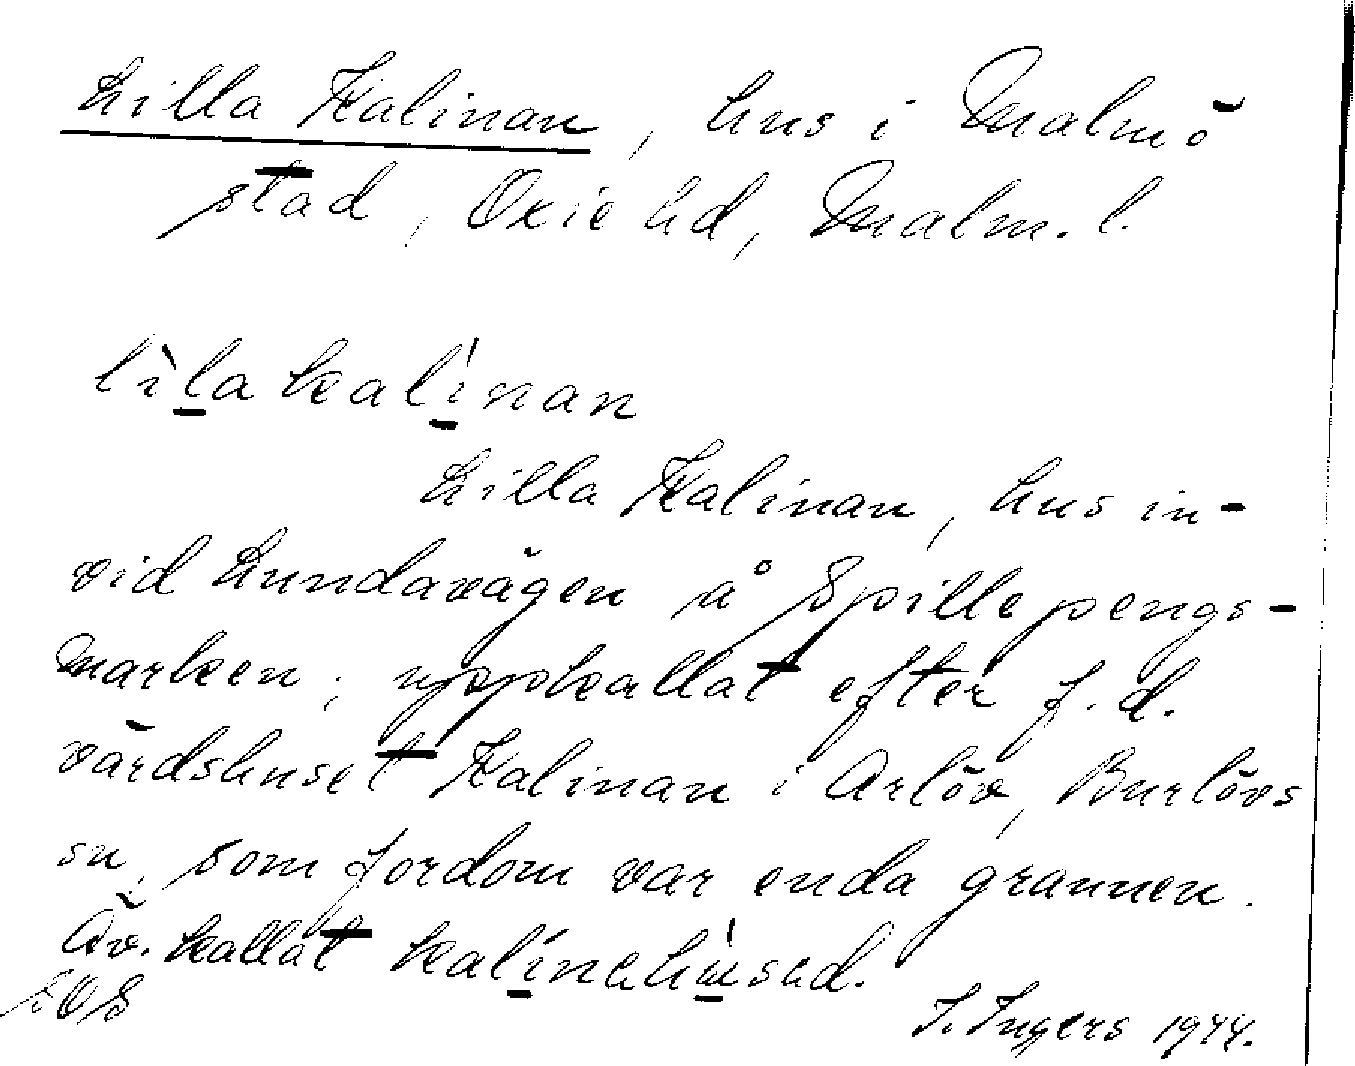 Lilla Kalinan, hus i Malmö
stad, Oxie hd, Malm. l.
lìla kalínan
Lilla Kalinan, hus in-
vid Lundavägen å Spillepengs-
marken; uppkallat efter f.d.
värdshuset Kalinan i Arlöv, Burlövs
sn, som fordom var enda grannen.
Äv. kallat
I. Ingers 1944.